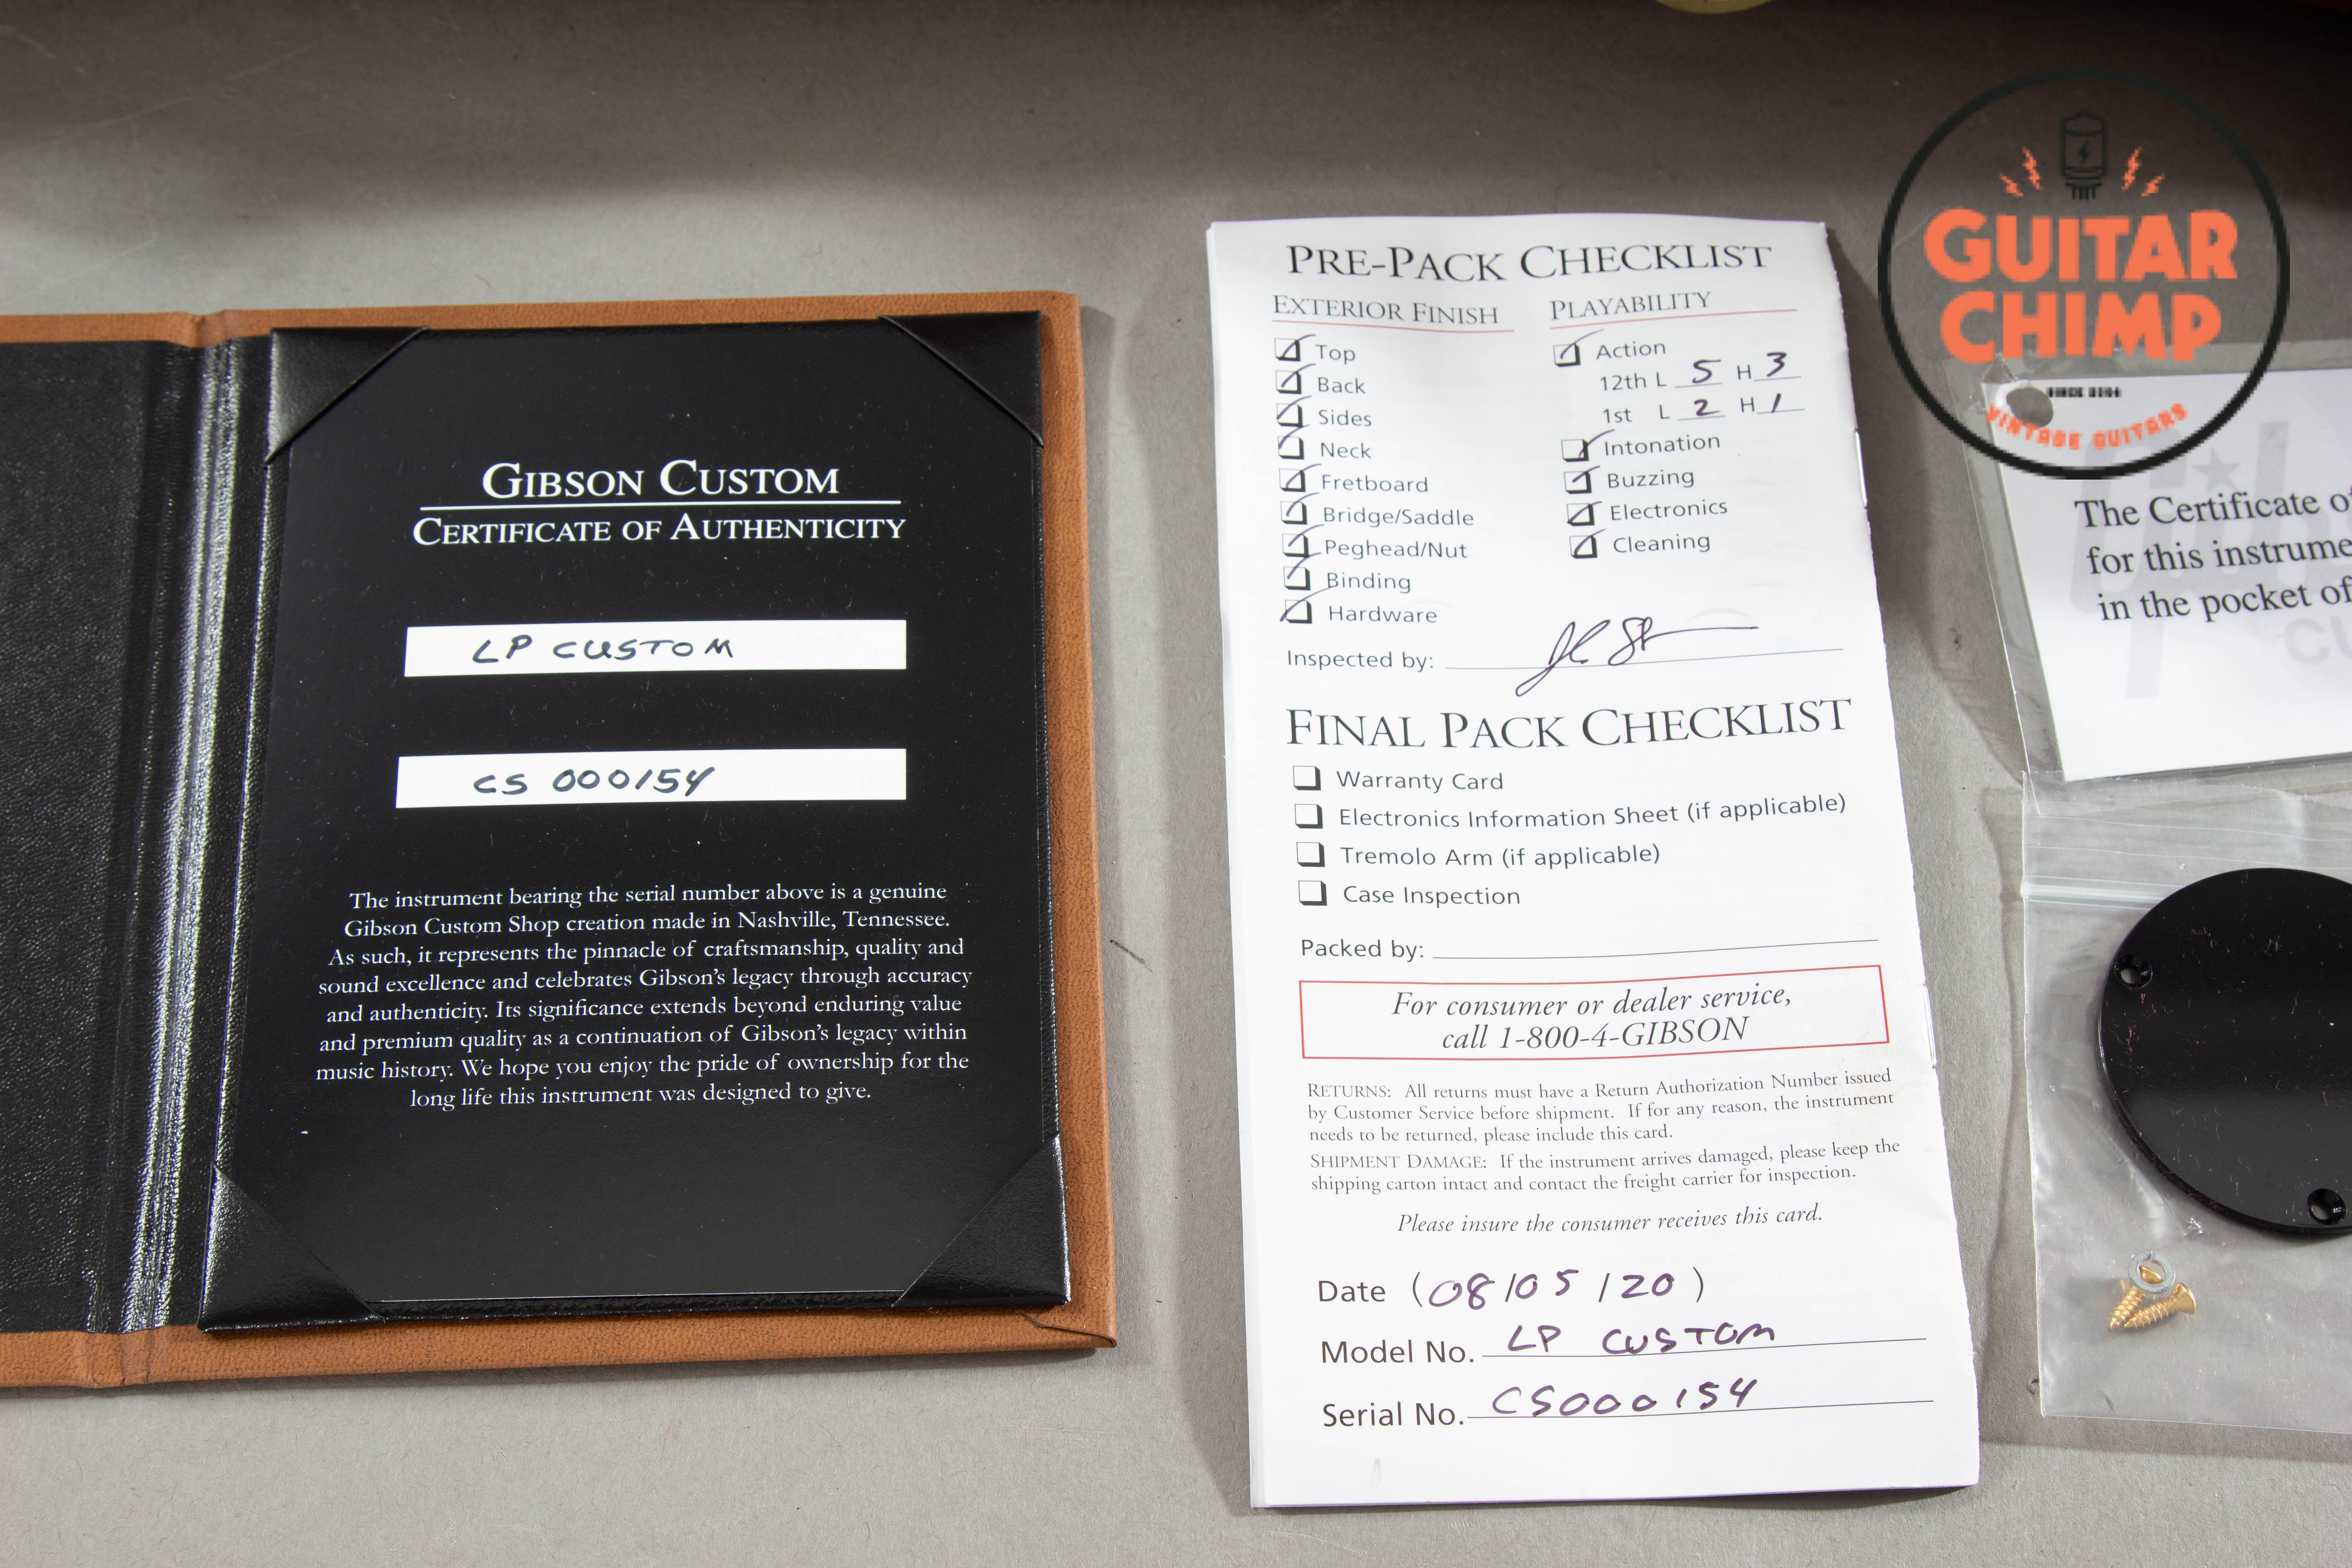 GIBSON CUSTOM
CERTIFICATE OF AUTHENTICITY
LP CUSTOM
CS 000154
The instrument bearing the serial number above is a genuine
Gibson Custom Shop creation made in Nashville, Tennessee.
As such, it represents the pinnacle of craftsmanship, quality and
sound excellence and celebrates Gibson's legacy through accuracy
and authenticity. Its significance extends beyond enduring value
and premium quality as a continuation of Gibson's legacy within
music history. We hope you enjoy the pride of ownership for the
long life this instrument was designed to give.
PRE-PACK CHECKLIST
EXTERIOR FINISH
Top
Back
Sides
Neck
Fretboard
Bridge/Saddle
Peghead/Nut
Binding
Hardware
PLAYABILITY
Action
12th L 5 H 3
1st L 2 H 1
Intonation
Buzzing
Electronics
Cleaning
Inspected by:
FINAL PACK CHECKLIST
Warranty Card
Electronics Information Sheet (if applicable)
Tremolo Arm (if applicable)
Case Inspection
Packed by:
For consumer or dealer service,
call 1-800-4-GIBSON
RETURNS: All returns must have a Return Authorization Number issued
by Customer Service before shipment. If for any reason, the instrument
needs to be returned, please include this card.
SHIPMENT DAMAGE: If the instrument arrives damaged, please keep the
shipping carton intact and contact the freight carrier for inspection.
Please insure the consumer receives this card.
Date (08/05/20)
Model No. LP CUSTOM
Serial No. CS000154
GUITAR
CHIMP
VINTAGE GUITARS
The Certificate of
for this instrume
in the pocket of